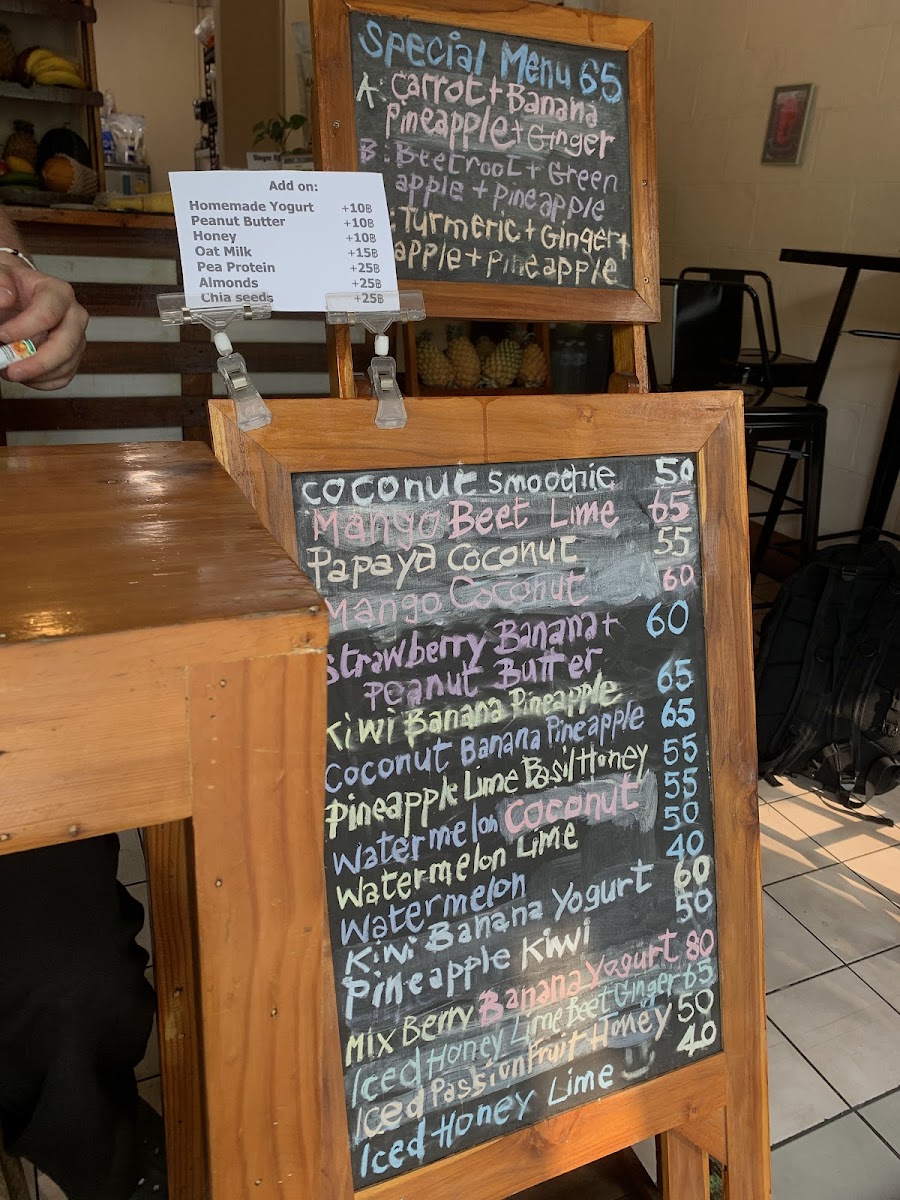 Special Menu 65
A: Carrot + Banana
Pineapple + Ginger
B: Beetroot + Green
apple + pineapple
: Turmeric + Ginger +
apple + Pineapple
Add on:
Homemade Yogurt +10฿
Peanut Butter +10฿
Honey +10฿
Oat Milk +15฿
Pea Protein +25฿
Almonds +25฿
Chia seeds +25฿
coconut smoothie 50
Mango Beet Lime 65
Papaya coconut 55
Mango Coconut 60
Strawberry Banana + 60
Peanut Butter
Kiwi Banana Pineapple 65
Coconut Banana Pineapple 65
Pineapple Lime Basil Honey 55
Watermelon coconut 55
Watermelon Lime 50
Watermelon 40
Kiwi Banana Yogurt 60
Pineapple Kiwi 50
Mix Berry Banana Yogurt 80
Iced Honey Lime Beet Ginger 65
Iced Passionfruit Honey 50
Iced Honey Lime 40